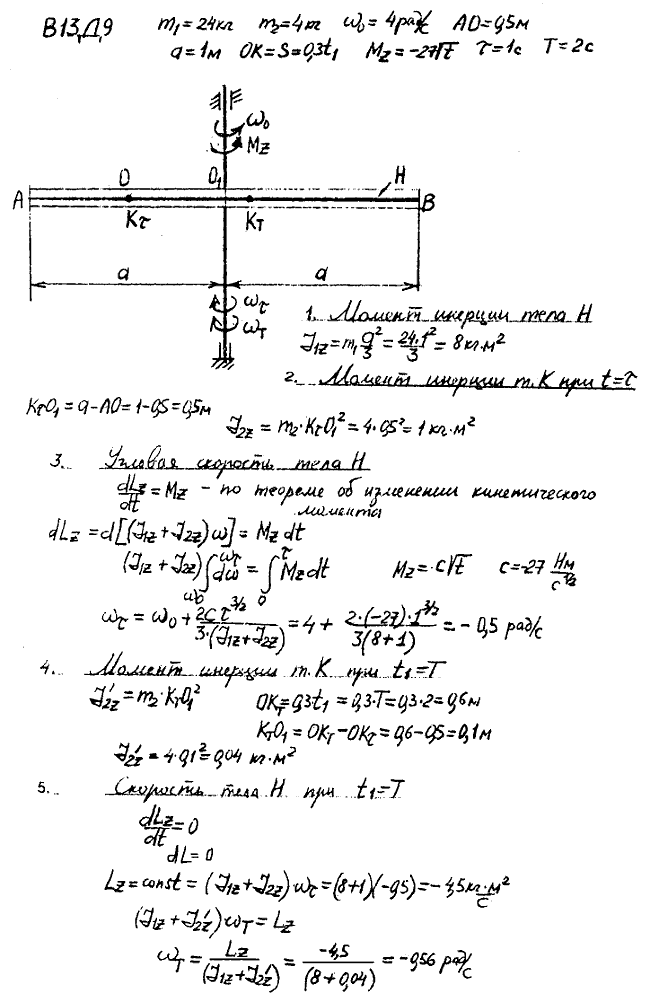 В13,Д.9 m₁=24кг m₂=4кг ω₀=4рад/с AO=0,5м
a=1м OK=S=0,3t₁ M_z=-27√t τ=1с T=2с
ω₀
M_z
O O₁ H
A B
K_τ K_T
a a
ω_τ
ω_T
1. Момент инерции тела H
J₁z=m₁a²/3=24·1²/3=8кг·м²
2. Момент инерции т.K при t=τ
K_τO₁=a-AO=1-0,5=0,5м
J₂z=m₂·K_τO₁²=4·0,5²=1кг·м²
3. Угловая скорость тела H
dLz/dt=Mz - по теореме об изменении кинетического
момента
dLz=d[(J₁z+J₂z)ω]=Mz dt
(J₁z+J₂z)∫_{ω₀}^{ω_τ}dω=∫_0^τ Mz dt Mz=c√t c=-27 Нм/с^{1/2}
ω_τ=ω₀+2cτ^{3/2}/3·(J₁z+J₂z)=4+2·(-27)·1^{3/2}/3(8+1)=-0,5 рад/с
4. Момент инерции т.K при t₁=T
J₂z'=m₂·K_TO₁² OK_T=0,3t₁=0,3·T=0,3·2=0,6м
K_TO₁=OK_T-OK_τ=0,6-0,5=0,1м
J₂z'=4·0,1²=0,04 кг·м²
5. Скорость тела H при t₁=T
dLz/dt=0
dL=0
Lz=const=(J₁z+J₂z)ω_τ=(8+1)(-0,5)=-4,5кг·м²/с
(J₁z+J₂z')ω_T=Lz
ω_T=Lz/(J₁z+J₂z')=-4,5/(8+0,04)=-0,56 рад/с